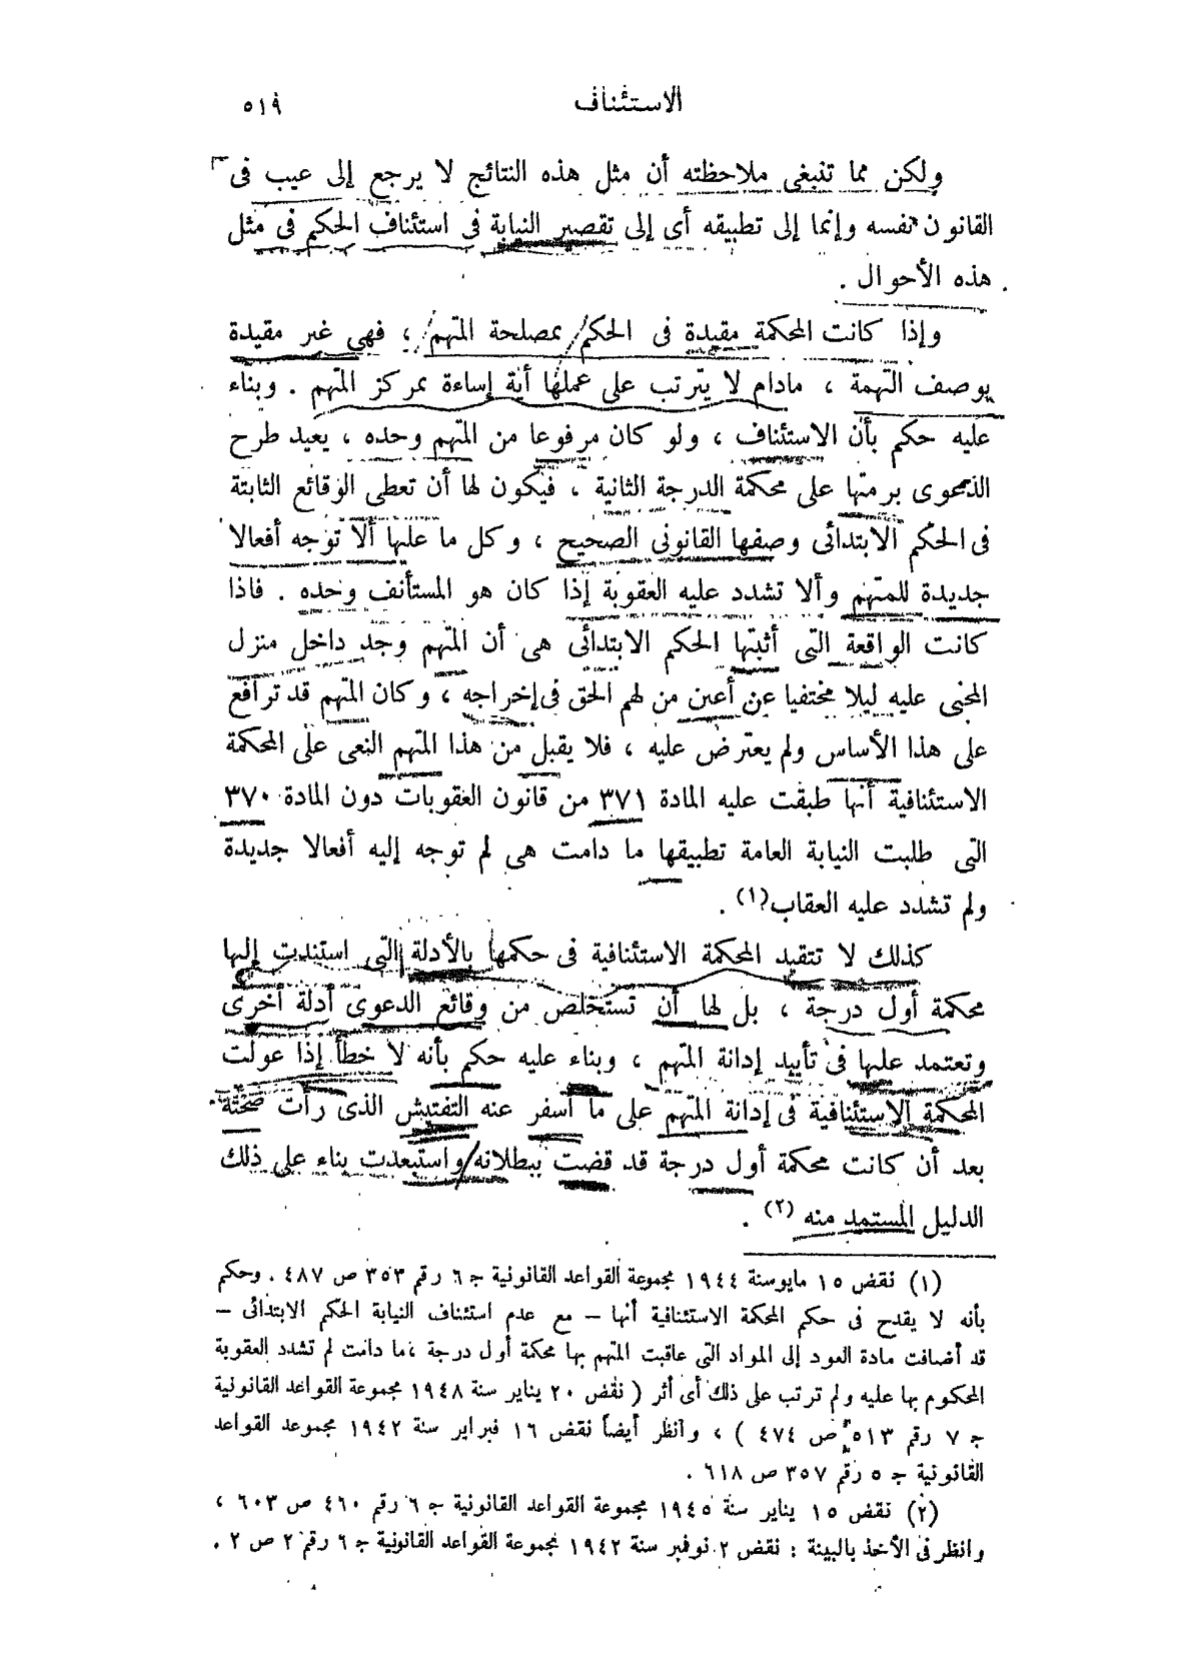 الاستئناف ٥١٩
ولكن مما تنبغى ملاحظته أن مثل هذه النتائج لا يرجع إلى عيب فى
القانون نفسه وإنما إلى تطبيقه أى إلى تقصير النيابة فى استئناف الحكم فى مثل
هذه الأحوال .
وإذا كانت المحكمة مقيدة فى الحكم بمصلحة المتهم ، فهى غير مقيدة
بوصف التهمة ، مادام لا يترتب على عملها أية إساءة بمركز المتهم . وبناء
عليه حكم بأن الاستئناف ، ولو كان مرفوعا من المتهم وحده ، يعيد طرح
الدعوى برمتها على محكمة الدرجة الثانية ، فيكون لها أن تعطى الوقائع الثابتة
فى الحكم الابتدائى وصفها القانونى الصحيح ، وكل ما عليها ألا توجه أفعالا
جديدة للمتهم وألا تشدد عليه العقوبة إذا كان هو المستأنف وحده . فاذا
كانت الواقعة التى أثبتها الحكم الابتدائى هى أن المتهم وجد داخل منزل
المجنى عليه ليلا مختفيا عن أعين من لهم الحق فى إخراجه ، وكان المتهم قد ترافع
على هذا الأساس ولم يعترض عليه ، فلا يقبل من هذا المتهم النعى على المحكمة
الاستئنافية أنها طبقت عليه المادة ٣٧١ من قانون العقوبات دون المادة ٣٧٠
التى طلبت النيابة العامة تطبيقها ما دامت هى لم توجه إليه أفعالا جديدة
ولم تشدد عليه العقاب(١) .
كذلك لا تتقيد المحكمة الاستئنافية فى حكمها بالأدلة التى استندت إليها
محكمة أول درجة ، بل لها أن تستخلص من وقائع الدعوى أدلة أخرى
وتعتمد عليها فى تأييد إدانة المتهم ، وبناء عليه حكم بأنه لا خطأ إذا عولت
المحكمة الاستئنافية فى إدانة المتهم على ما أسفر عنه التفتيش الذى رأت صحته
بعد أن كانت محكمة أول درجة قد قضت ببطلانه واستبعدت بناء على ذلك
الدليل المستمد منه (٢) .
(١) نقض ١٥ مايو سنة ١٩٤٤ مجموعة القواعد القانونية ج ٦ رقم ٣٥٣ ص ٤٨٧ . وحكم
بأنه لا يقدح فى حكم المحكمة الاستئنافية أنها – مع عدم استئناف النيابة الحكم الابتدائى –
قد أضافت مادة العود إلى المواد التى عاقبت المتهم بها محكمة أول درجة ، ما دامت لم تشدد العقوبة
المحكوم بها عليه ولم ترتب على ذلك أى أثر ( نقض ٢٠ يناير سنة ١٩٤٨ مجموعة القواعد القانونية
ج ٧ رقم ٥١٣ ص ٤٧٤ ) ، وانظر أيضاً نقض ١٦ فبراير سنة ١٩٤٢ مجموعد القواعد
القانونية ج ٥ رقم ٣٥٧ ص ٦١٨ .
(٢) نقض ١٥ يناير سنة ١٩٤٥ مجموعة القواعد القانونية ج ٦ رقم ٤٦٠ ص ٦٠٣ ،
وانظر فى الأخذ بالبينة : نقض ٢ نوفمبر سنة ١٩٤٢ مجموعة القواعد القانونية ج ٦ رقم ٢ ص ٢ .